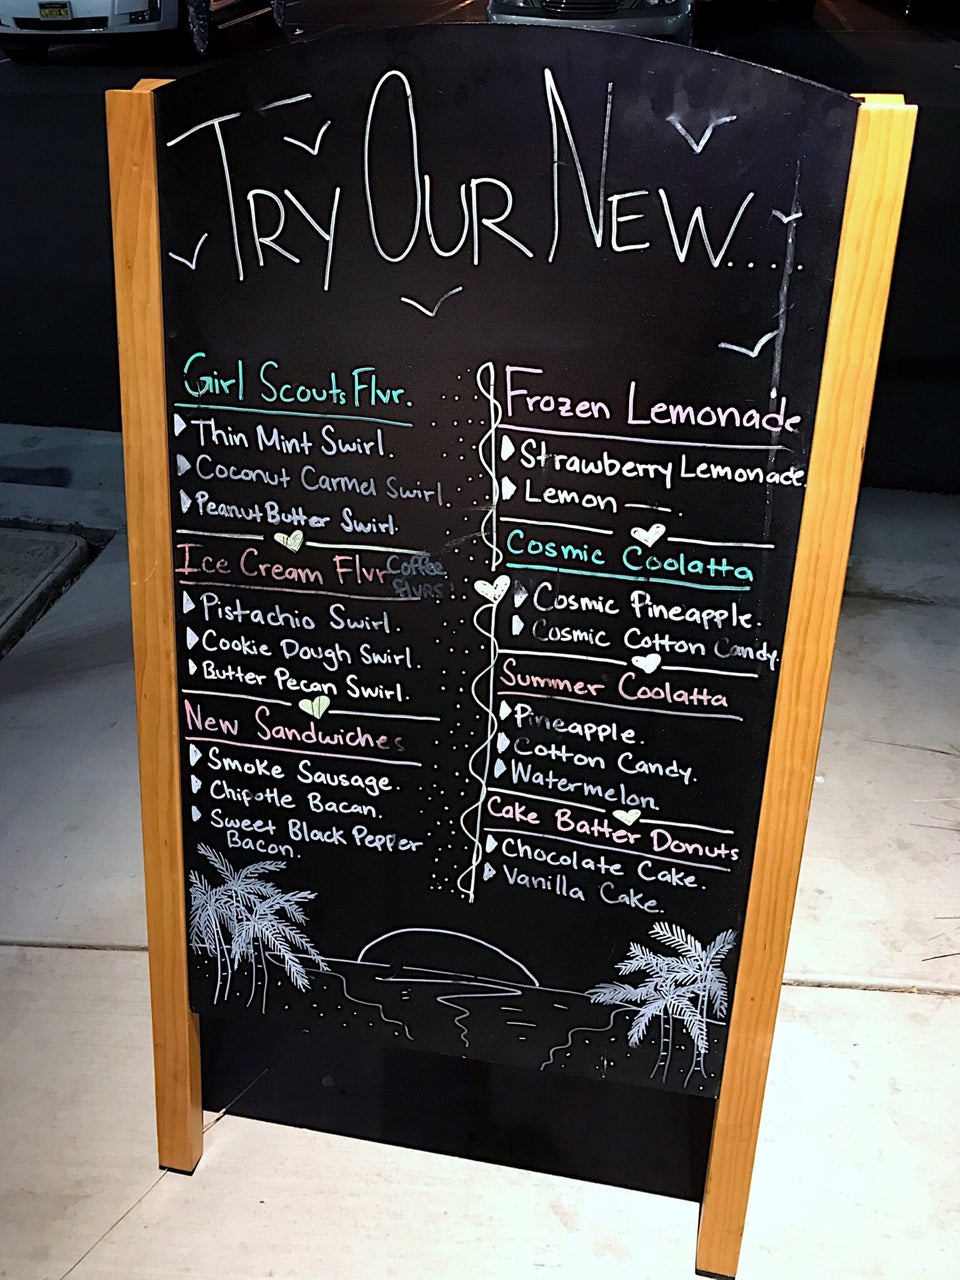 Try Our New.....
Girl Scouts Flvr.
Thin Mint Swirl.
Coconut Carmel Swirl.
Peanut Butter Swirl.
Ice Cream Flvr Coffee
Flvrs!
Pistachio Swirl.
Cookie Dough Swirl.
Butter Pecan Swirl.
New Sandwiches
Smoke Sausage.
Chipotle Bacan.
Sweet Black Pepper
Bacon.
Frozen Lemonade
Strawberry Lemonade.
Lemon —.
Cosmic Coolatta
Cosmic Pineapple.
Cosmic Cotton Candy.
Summer Coolatta
Pineapple.
Cotton Candy.
Watermelon
Cake Batter Donuts
Chocolate Cake.
Vanilla Cake.